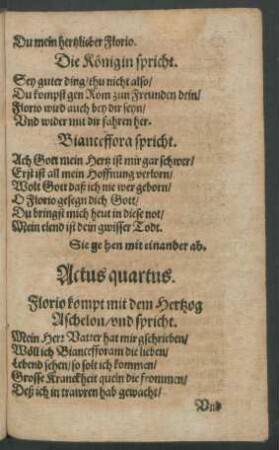 Du mein hertzlieber Florio.
Die Königin spricht.
Sey guter ding/thu nicht also/
Du kompst gen Rom zun Freunden dein/
Florio wird auch bey dir seyn/
Vnd wider mit dir fahren her.
Bianceffora spricht.
Ach Gott mein Hertz ist mir gar schwer/
Erst ist all mein Hoffnung verlorn/
Wolt Gott daß ich nie wer geborn/
O Florio gesegn dich Gott/
Du bringst mich heut in diese not/
Mein elend ist dein gwisser Todt.
Sie gehen mit einander ab.
Actus quartus.
Florio kompt mit dem Hertzog
Aschelon/vnd spricht.
Mein Herr Vatter hat mir gschrieben/
Wöll ich Biancefforam die lieben/
Lebend sehen/so solt ich kommen/
Grosse Kranckheit queln die frommen/
Deß ich in trawren hab gewacht/
Vnd